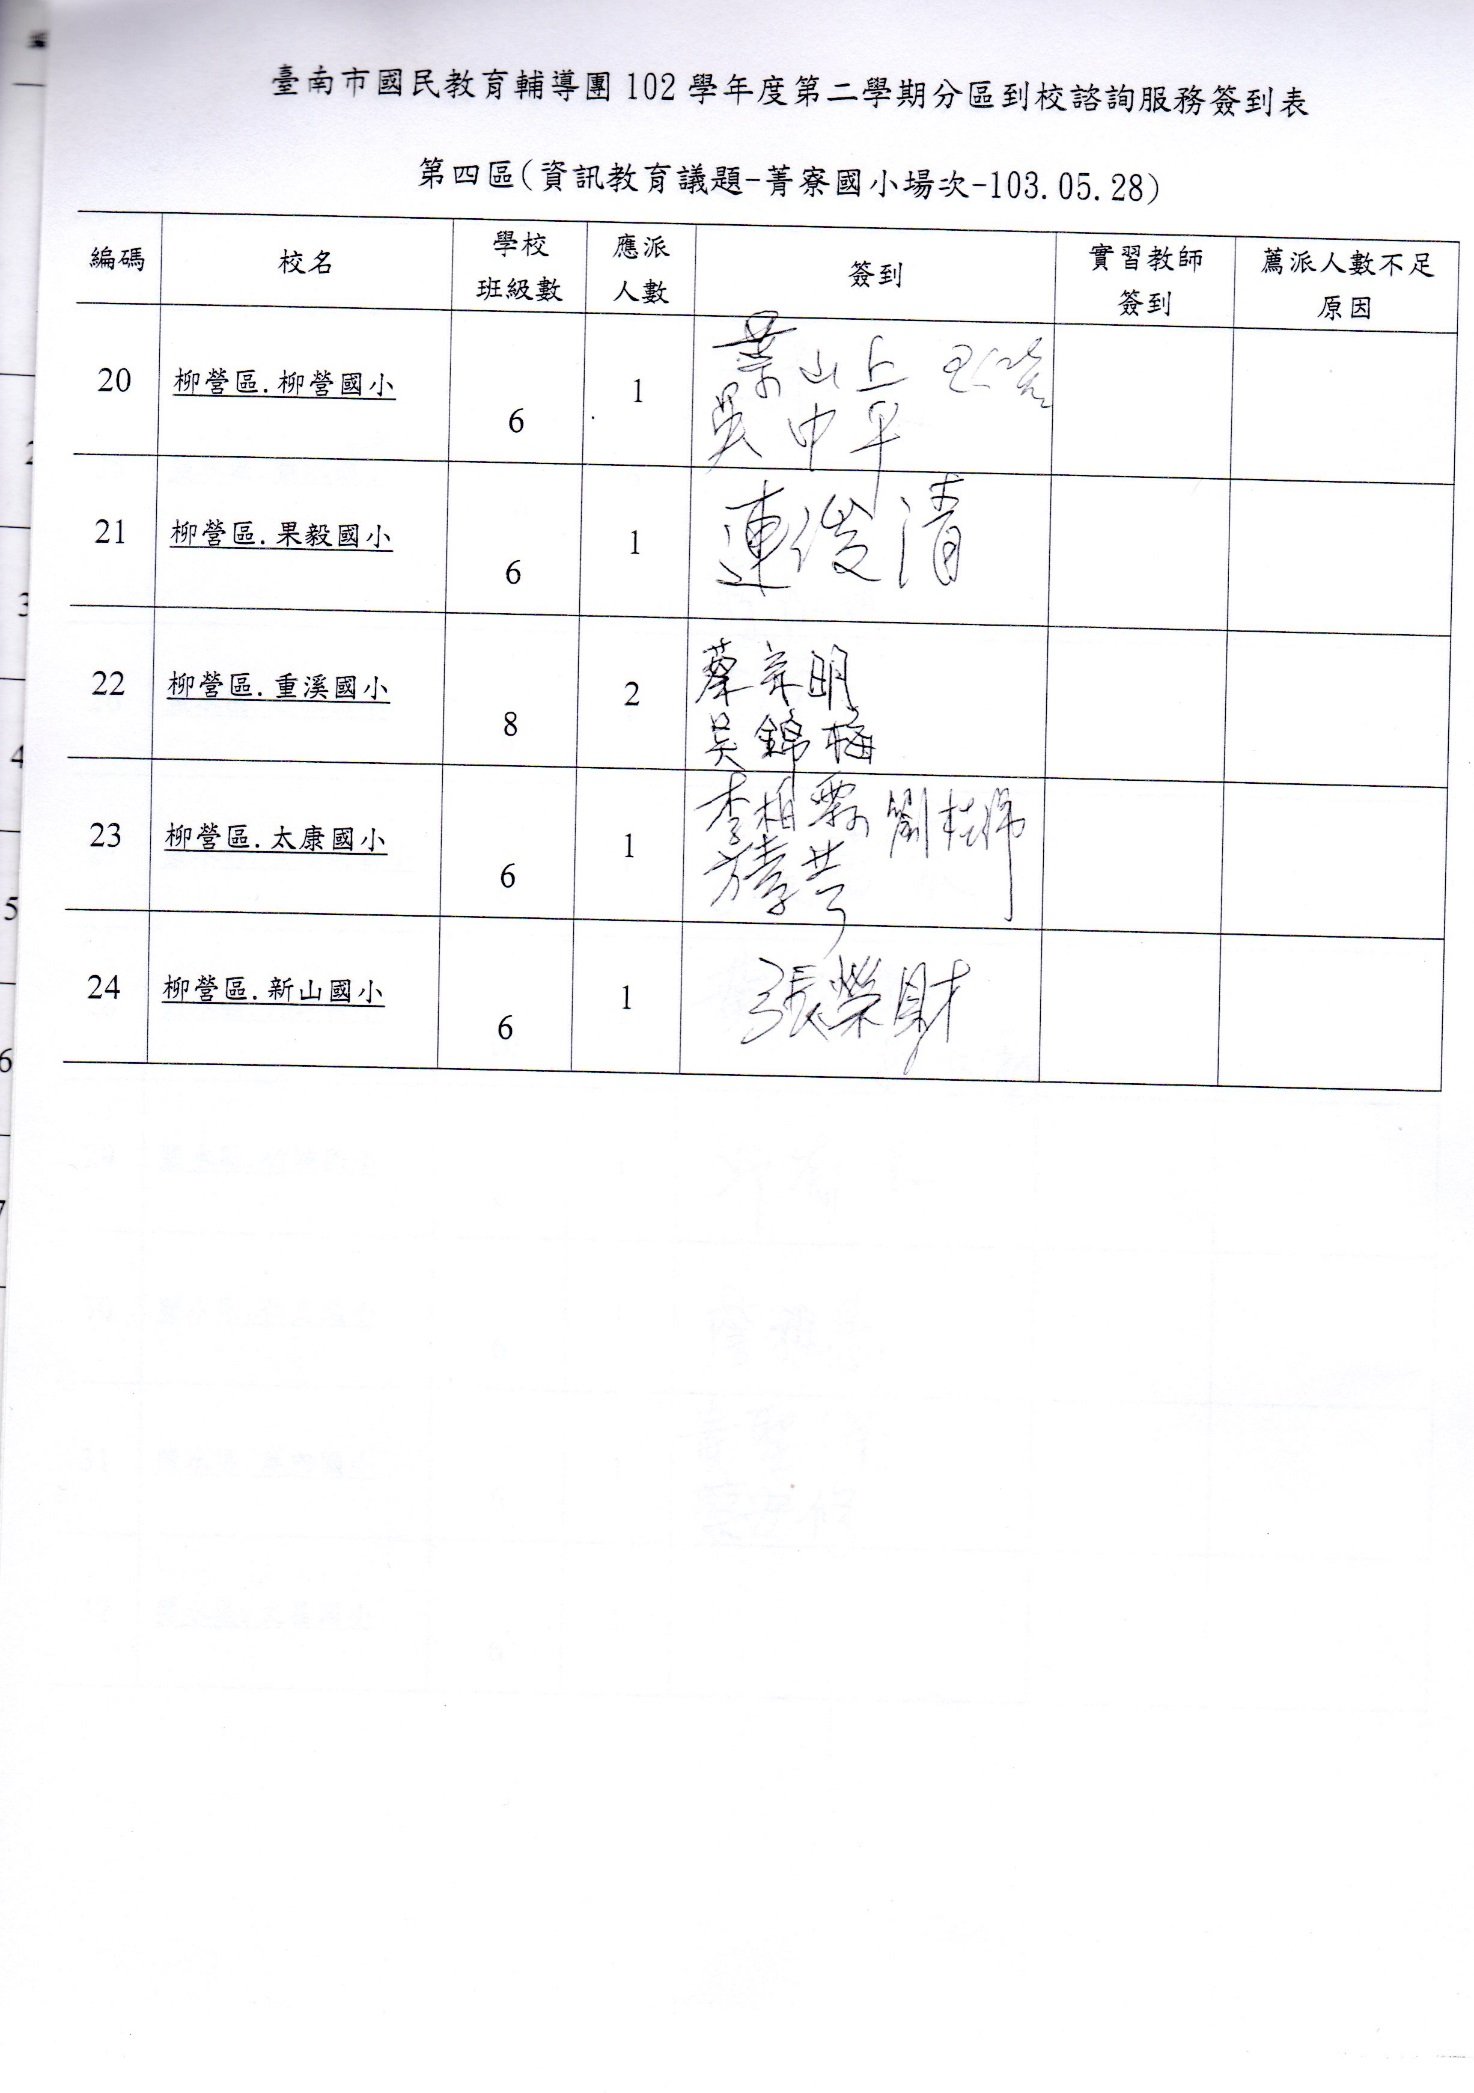 臺南市國民教育輔導團 102 學年度第二學期分區到校諮詢服務簽到表
第四區(資訊教育議題-菁寮國小場次-103.05.28)
編碼 校名 學校班級數 應派人數 簽到 實習教師簽到 薦派人數不足原因
20 柳營區.柳營國小 6 1 葉山上
吳中平
21 柳營區.果毅國小 6 1 連俊清
22 柳營區.重溪國小 8 2 蔡明
吳錦梅
23 柳營區.太康國小 6 1 李柏霖 劉
方
24 柳營區.新山國小 6 1 張榮財